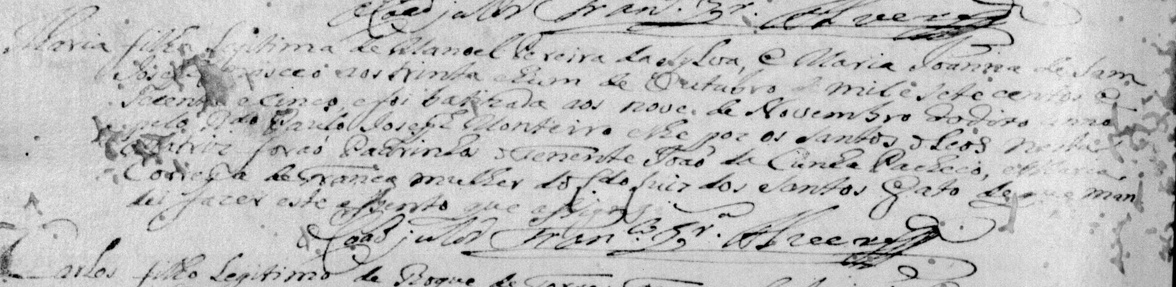 Coadjutor Fran.co
Maria filha Legitima de Manoel Pereira da Sylva, e Maria Joanna de Sam
Joseph nasceo aos trinta e hum de Outubro de mil e sete centos e
secenta e cinco, e foi batizada aos nove de Novembro do dito anno
pelo Paulo Joseph Monteiro e lhe poz os santos oleos nesta
Matriz forão Padrinhos o tenente João da Cunha Pacheco, e Maria
Correya de França mulher do Luiz dos Santos Gato de que man
dei fazer este assento que assigney
Coadjutor Fran.co
Carlos filho Legitimo de Roque de